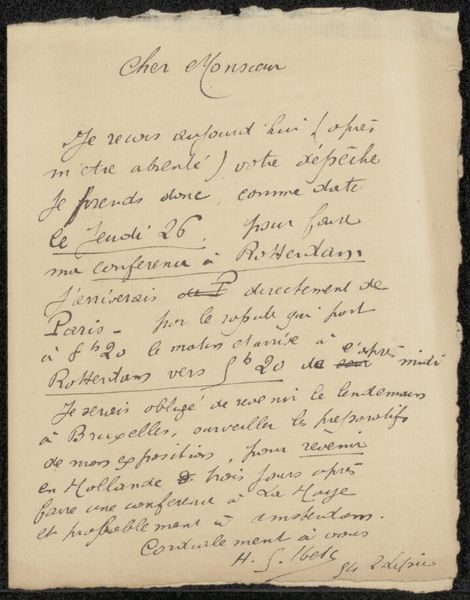 Cher Monsieur
Je recois aujourd'hui (après
m'être absenté) votre dépêche
Je prends donc, comme date
le Jeudi 26, pour faire
ma conference à Rotterdam
J'arriverais de P directement de
Paris - par le rapide qui part
à 8 h 20 le matin et arrive à
Rotterdam vers 5 h 20 de l'après midi
Je serais obligé de revenir le lendemain
à Bruxelles, surveiller les préparatifs
de mon exposition, pour revenir
en Hollande trois jours après
faire une conference à La Haye
et probablement à Amsterdam.
Cordialement à vous
H. G. Ibels